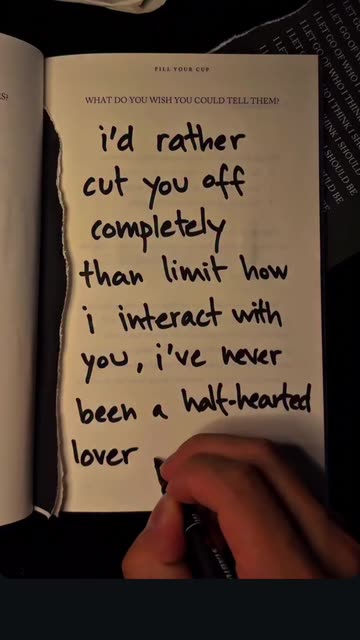 FILL YOUR CUP
WHAT DO YOU WISH YOU COULD TELL THEM?
i'd rather
cut you off
completely
than limit how
i interact with
you, i've never
been a half-hearted
lover
I LET GO OF WHO I THINK I SHOULD BE